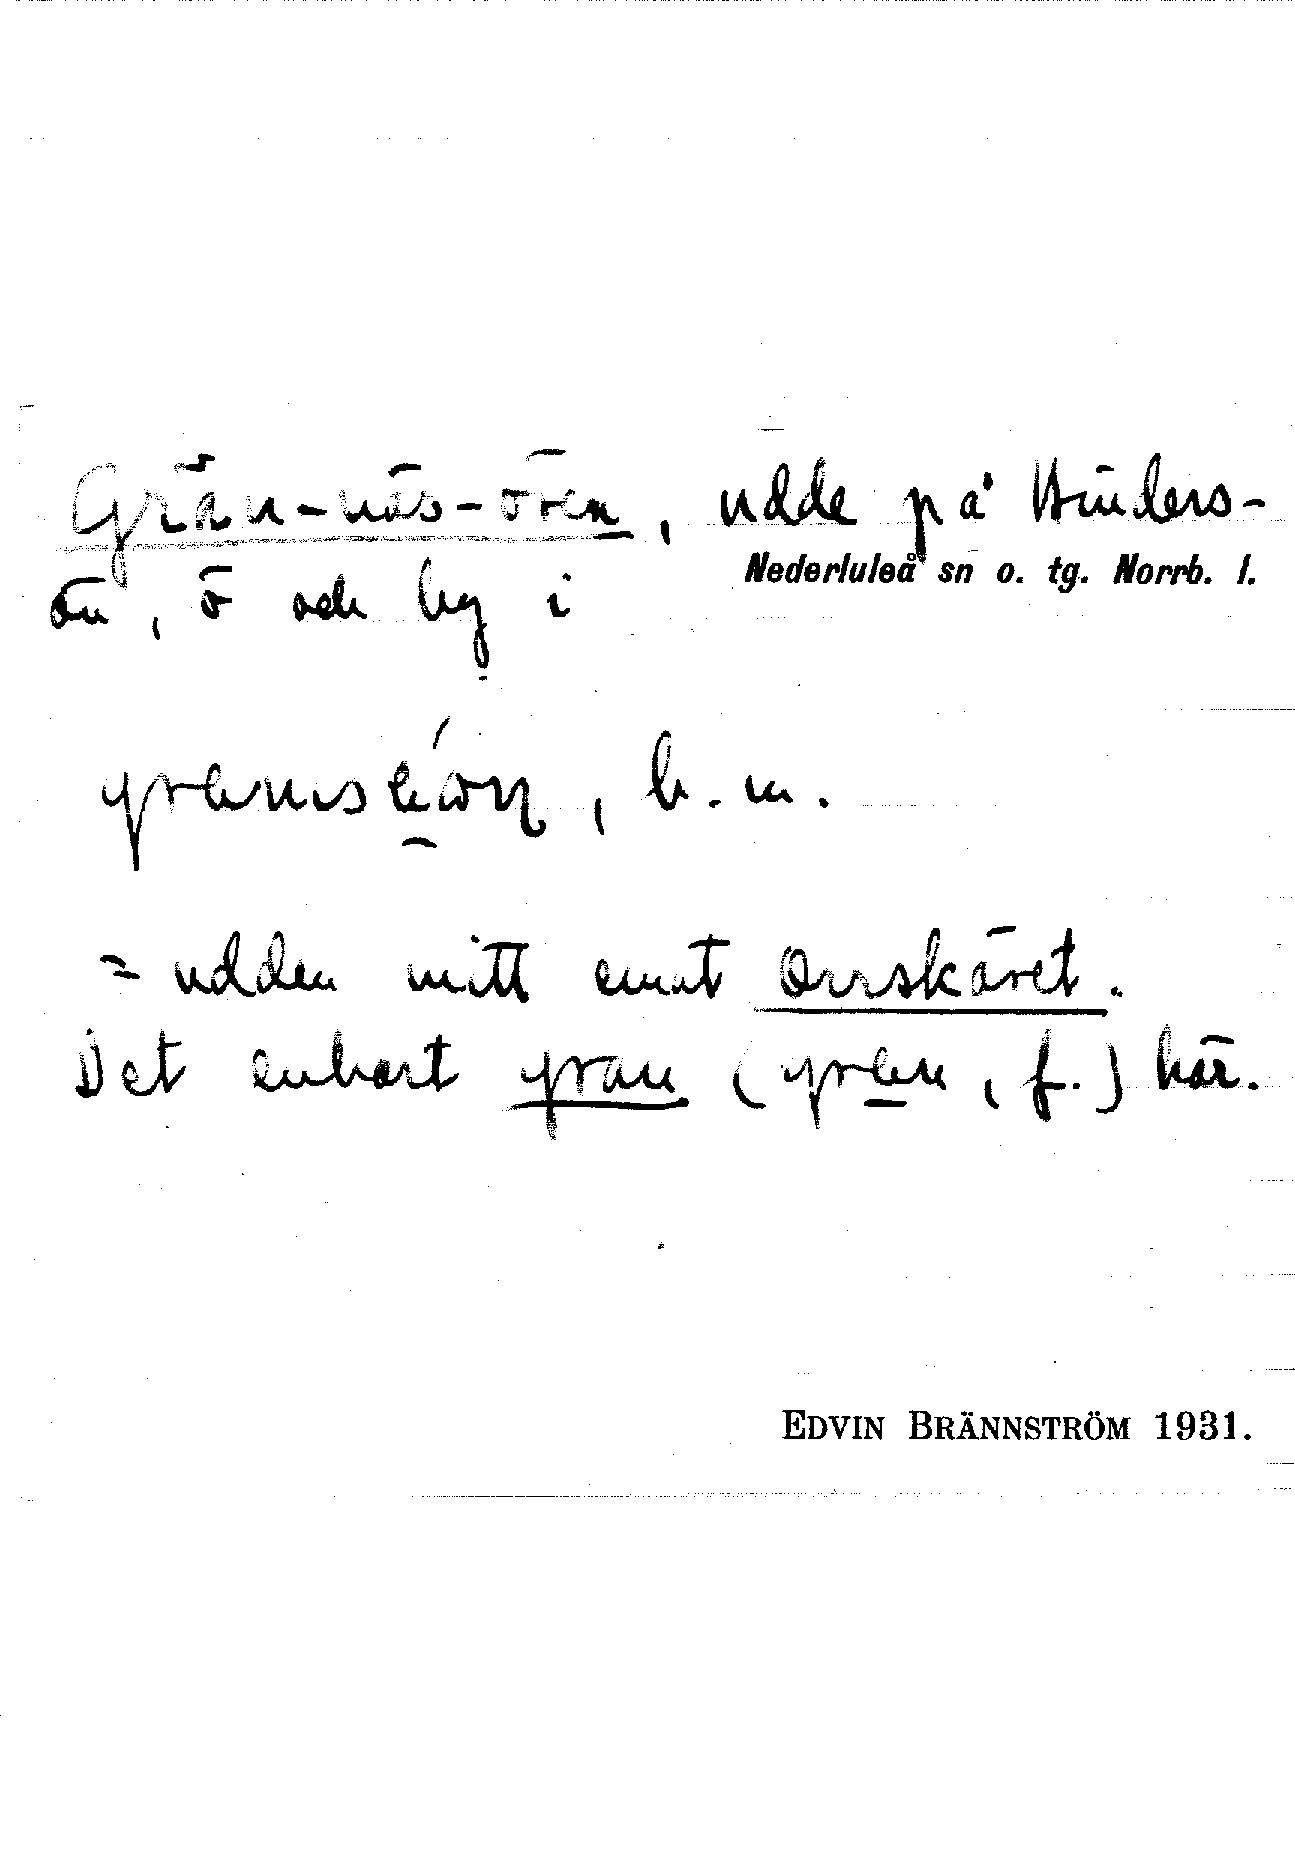 Grän-näs-ören, udde på Hinders-
ön, ö och by i Nederluleå sn o. tg. Norrb. l.
, b. m.
= udden mitt emot Orrskäret.
Det enbart gran (gren, f.) här.
EDVIN BRÄNNSTRÖM 1931.